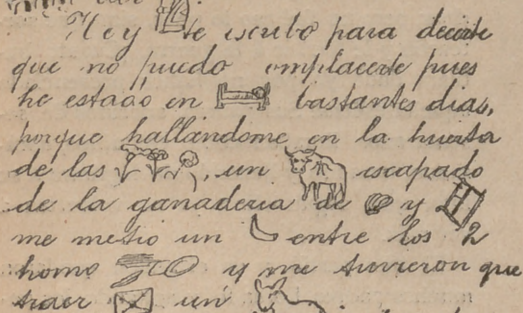 Hoy te escribo para decirte
que no puedo complacerte pues
he estado en bastantes dias,
porque hallándome en la huerta
de las , un escapado
de la ganaderia de y
me metió un entre los 2
homo y me tuvieron que
traer un